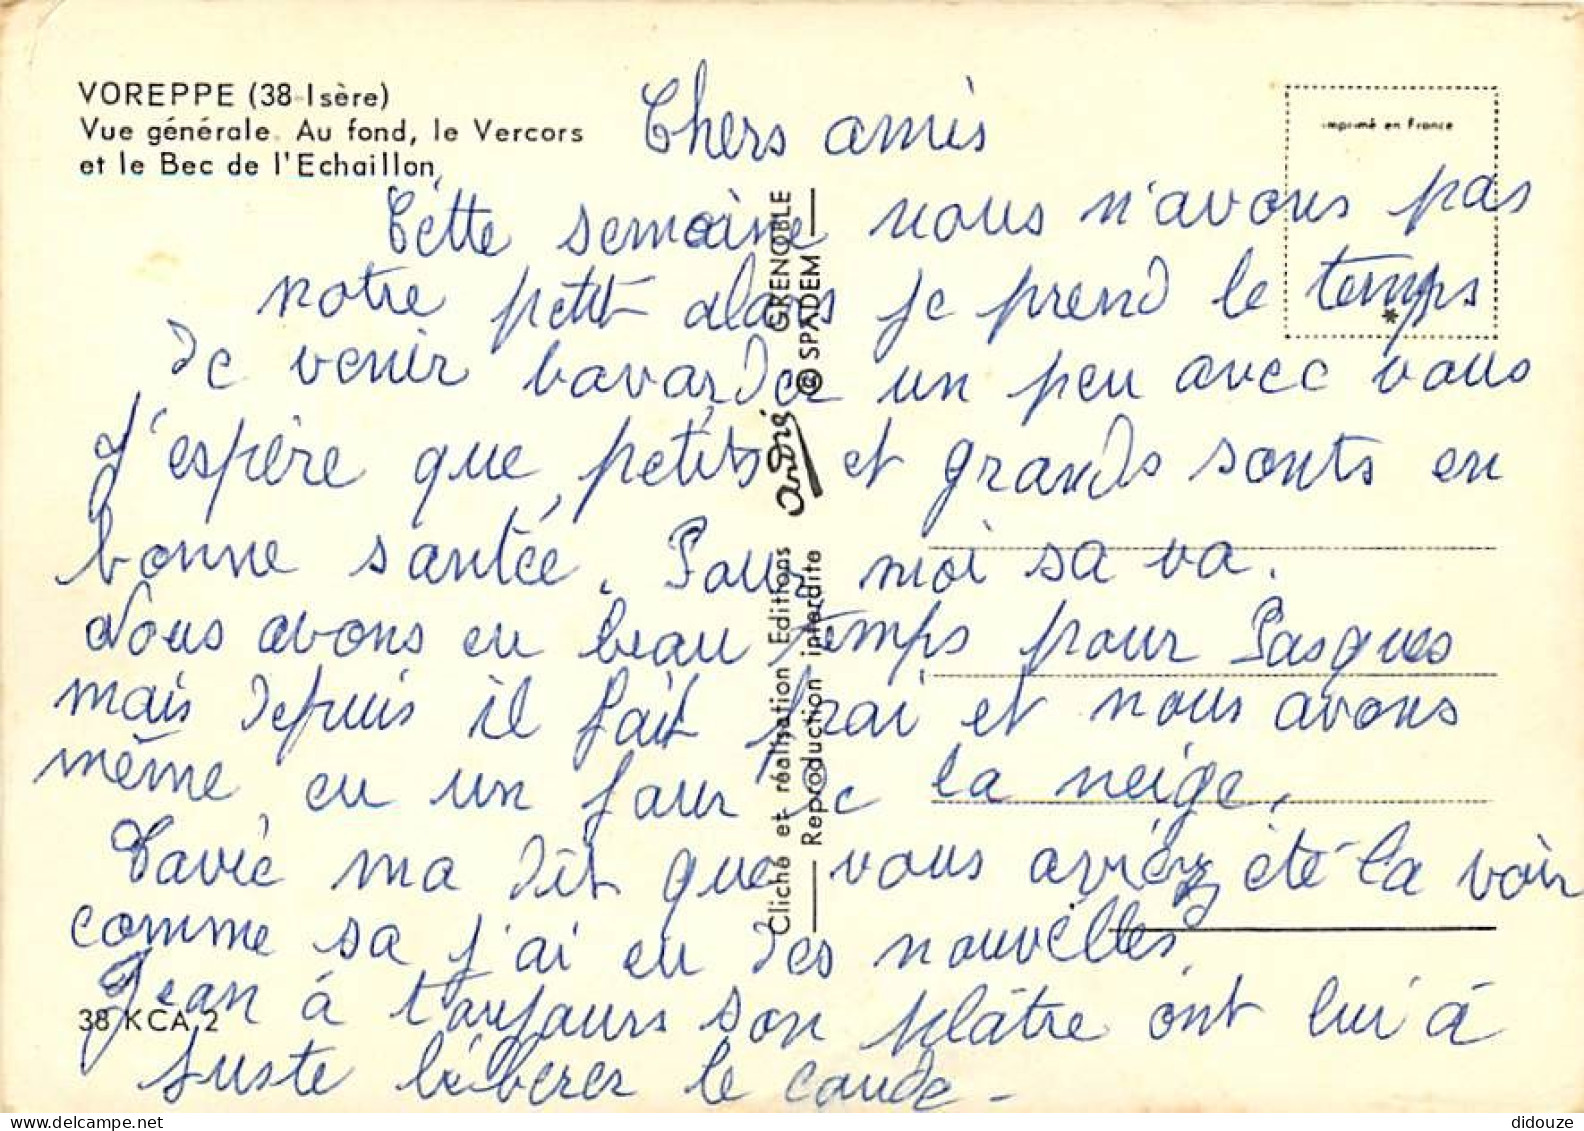 VOREPPE (38-Isère)
Vue générale. Au fond, le Vercors
et le Bec de l'Echaillon
imprimé en France
Chers amis
Cette semaine nous n'avons pas
notre petit alors je prend le temps
de venir bavarder un peu avec vous
J'espère que petits et grands sonts en
bonne santée. Pour moi sa va.
Nous avons eu beau temps pour Pasques
mais depuis il fait frai et nous avons
même eu un jour de la neige.
ma dit que vous aviez été la voir
comme sa j'ai eu des nouvelles
Jean à toujours son plâtre ont lui à
juste libérer le coude -
38 KCA 2
Cliché et réalisation Editions andré GRENOBLE
Reproduction interdite © SPADEM
*
didouze